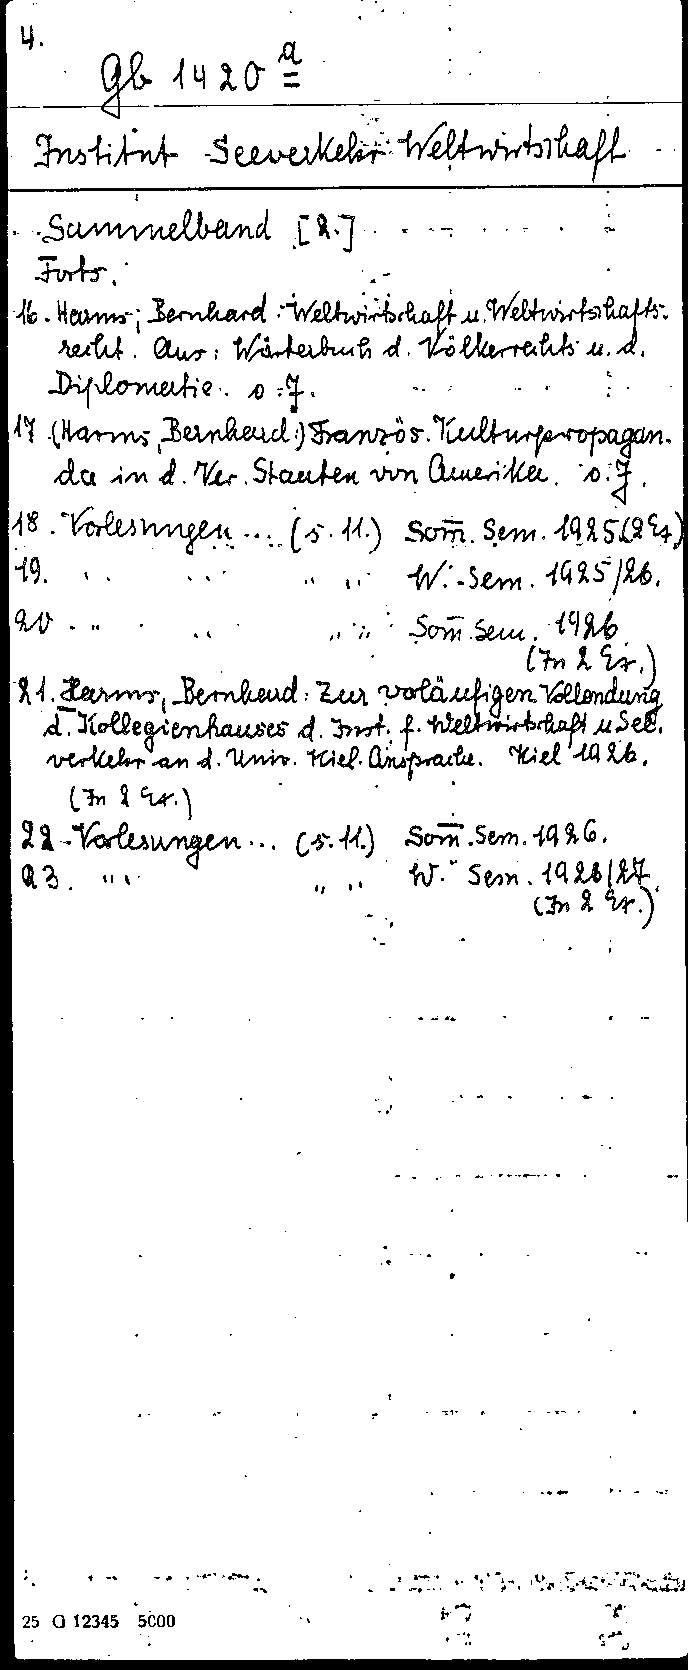 4.
Gb 1420 a
Institut Seeverkehr Weltwirtschaft
Sammelband [2.]
Forts.
16. Harms, Bernhard: Weltwirtschaft u. Weltwirtschafts-
recht. Aus: Wörterbuch d. Völkerrechts u. d.
Diplomatie. o. J.
17 (Harms, Bernhard:) Französ. Kulturpropagan-
da in d. Ver. Staaten von Amerika. o. J.
18. Vorlesungen ... (s. 11.) Som̄. Sem. 1925 (2 Ex.)
19. " " " " W.-Sem. 1925/26.
20 " " " " Som̄. Sem. 1926
(In 2 Ex.)
21. Harms, Bernhard: Zur voläufigen Vollendung
d. Kollegienhauses d. Inst. f. Weltwirtschaft u See-
verkehr an d. Univ. Kiel. Ansprache. Kiel 1926.
(In 2 Ex.)
22. Vorlesungen ... (s. 11.) Som̄. Sem. 1926.
23. " " " W. Sem. 1926/27
(In 2 Ex.)
25 G 12345 5000